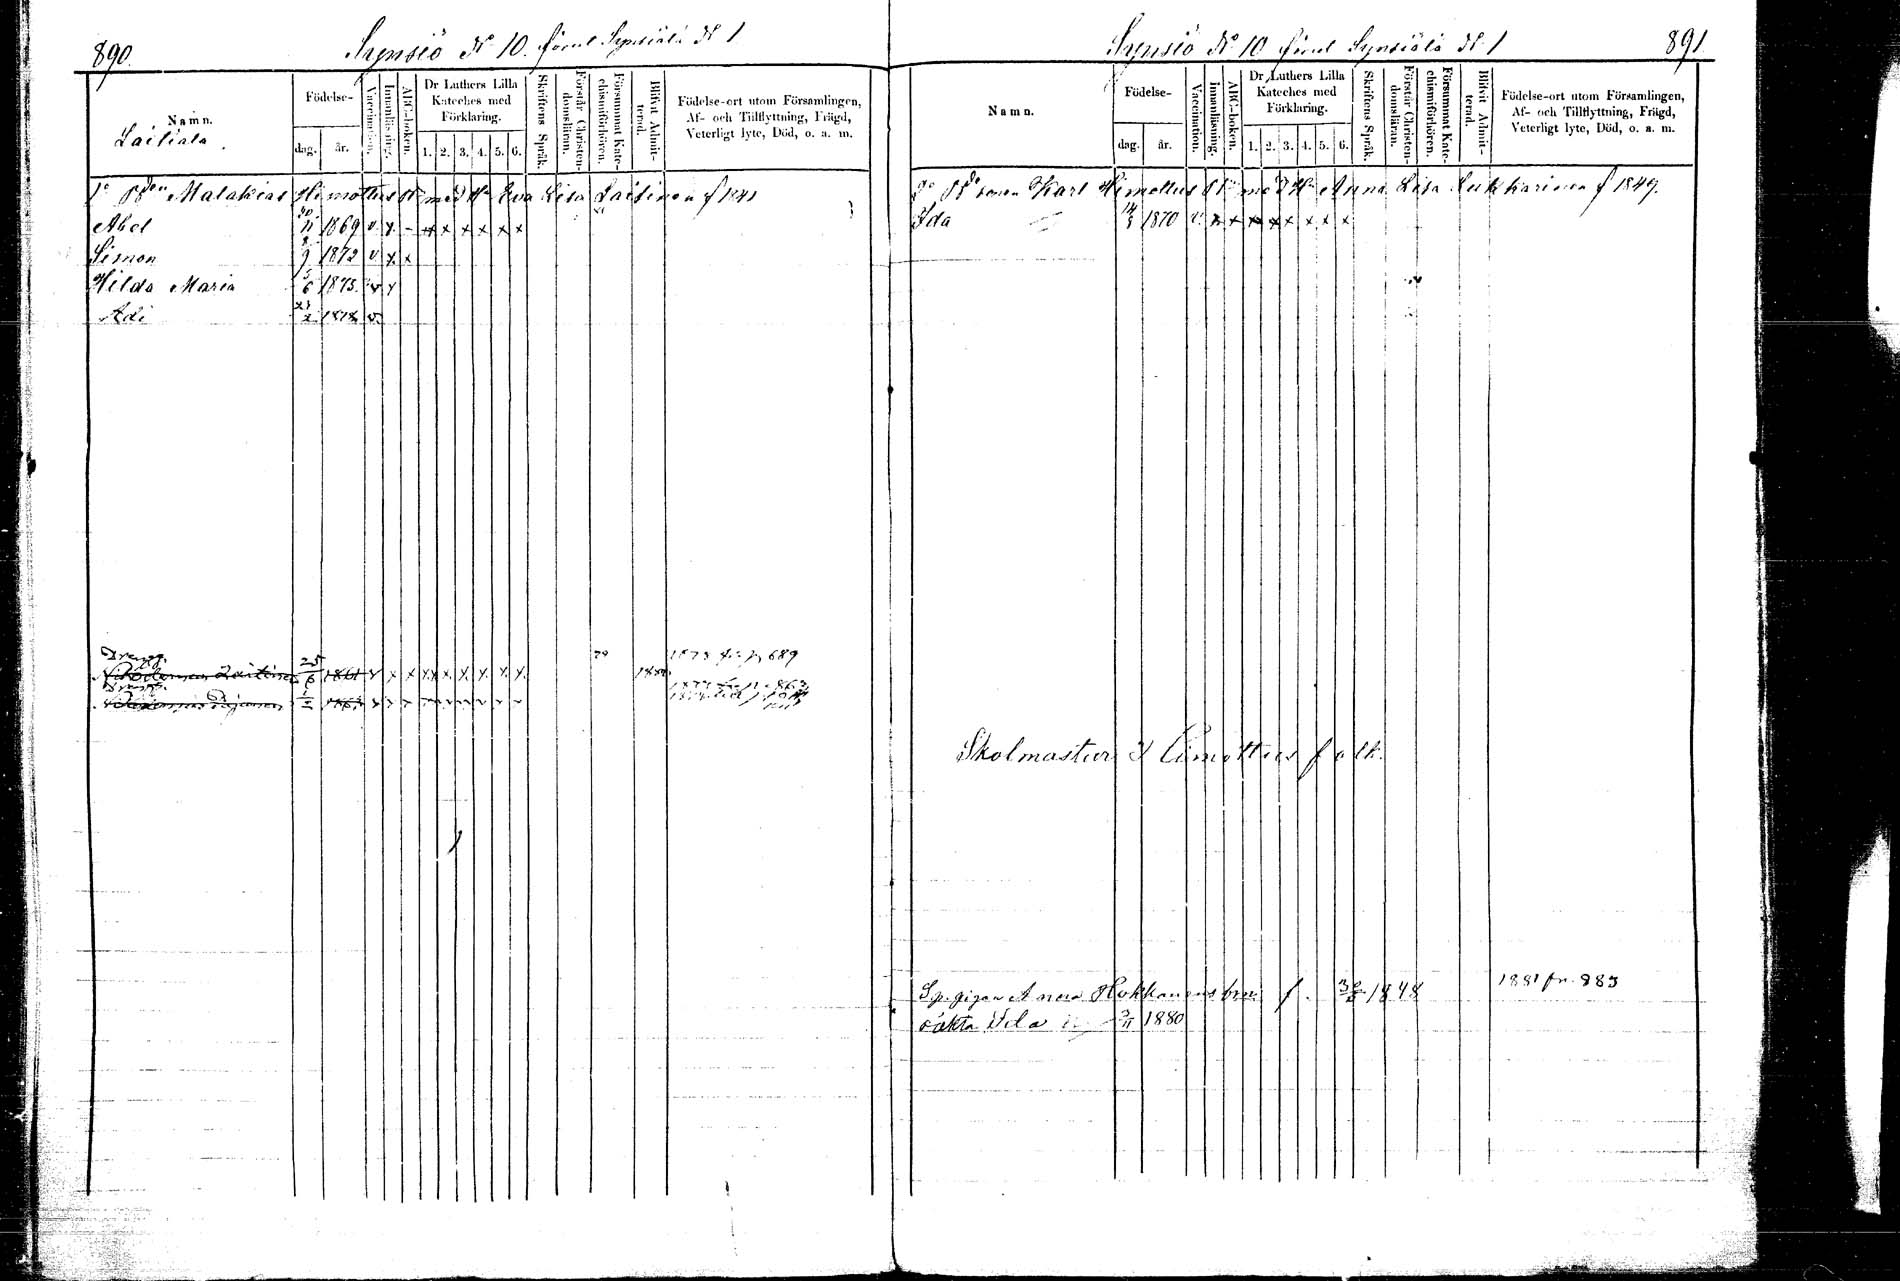 890.
Synsiö № 10. förut Synsiälä № 1
Namn.
Födelse-
dag.
år.
Vaccination.
Innanläsning.
ABC-boken.
Dr Luthers Lilla
Kateches med
Förklaring.
1. 2. 3. 4. 5. 6.
Skriftens Språk.
Förstår Christen-
domsläran.
Försummat Kate-
chismiförhören.
Blifvit Admit-
terad.
Födelse-ort utom Församlingen,
Af- och Tillflyttning, Frägd,
Veterligt lyte, Död, o. a. m.
Laitiala
Malakias Himottus med Hu Eva Lisa Laitinen f 1841
Abel 20/11 1869 v. x - x x x x x x
Simon 8/9 1872 v x x
Hilda Maria 5/6 1875 v x
Adi 23/2 1878 v.
Dreng.
Nikodemus Laitinen 25/6 1861 v x x x x x x x x 79 1880 1878 fr. p 689
Dreng.
891
Synsiö № 10 förut Synsiälä № 1
Namn.
Födelse-
dag.
år.
Vaccination.
Innanläsning.
ABC-boken.
Dr Luthers Lilla
Kateches med
Förklaring.
1. 2. 3. 4. 5. 6.
Skriftens Språk.
Förstår Christen-
domsläran.
Försummat Kate-
chismiförhören.
Blifvit Admit-
terad.
Födelse-ort utom Församlingen,
Af- och Tillflyttning, Frägd,
Veterligt lyte, Död, o. a. m.
sonen Karl Himottus med Hu Anna Lisa Lukkarinen f 1849.
Ida 1870 v. x x x x x x x x
Skolmastur Himottus folk.
Sp. pigan Anna Hokkanens brn f. 1848 1881 fr. 883
oäkta Ida 3/11 1880